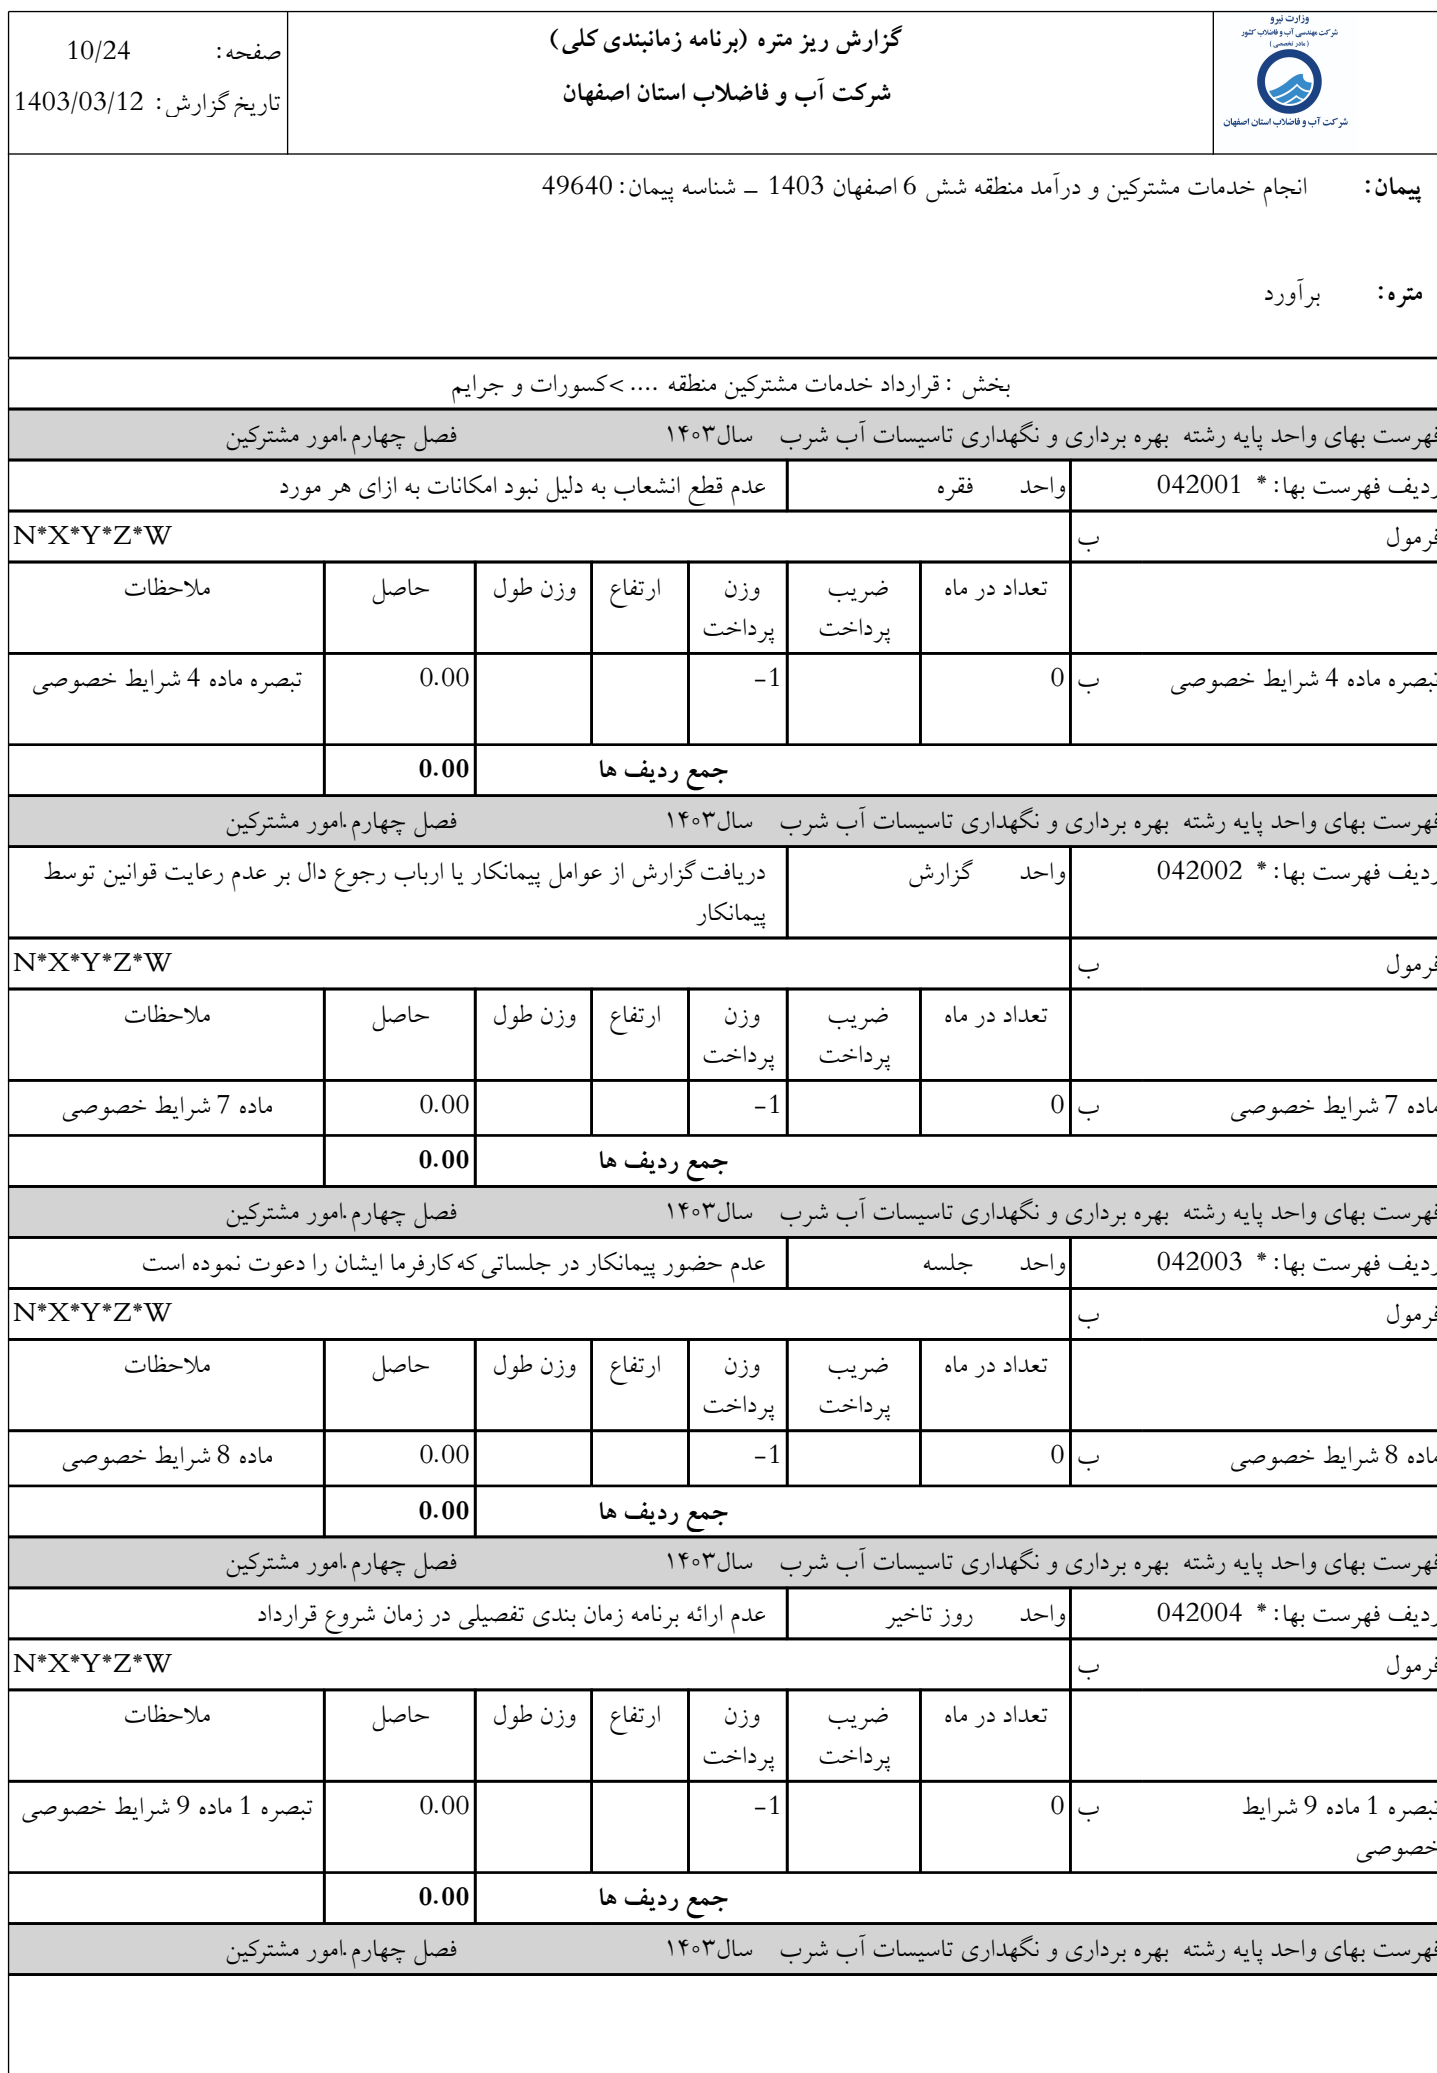 وزارت نیرو
شرکت مهندسی آب و فاضلاب کشور
( مادر تخصصی )
شرکت آب و فاضلاب استان اصفهان
گزارش ریز متره (برنامه زمانبندی کلی)
شرکت آب و فاضلاب استان اصفهان
صفحه: 10/24
تاریخ گزارش: 1403/03/12
پیمان: انجام خدمات مشترکین و درآمد منطقه شش 6 اصفهان 1403 – شناسه پیمان: 49640
متره: برآورد
بخش : قرارداد خدمات مشترکین منطقه .... >کسورات و جرایم
فهرست بهای واحد پایه رشته بهره برداری و نگهداری تاسیسات آب شرب سال۱۴۰۳ فصل چهارم.امور مشترکین
ردیف فهرست بها: * 042001 واحد فقره عدم قطع انشعاب به دلیل نبود امکانات به ازای هر مورد
فرمول ب N*X*Y*Z*W
تعداد در ماه ضریب پرداخت وزن پرداخت ارتفاع وزن طول حاصل ملاحظات
تبصره ماده 4 شرایط خصوصی ب 0 -1 0.00 تبصره ماده 4 شرایط خصوصی
جمع ردیف ها 0.00
فهرست بهای واحد پایه رشته بهره برداری و نگهداری تاسیسات آب شرب سال۱۴۰۳ فصل چهارم.امور مشترکین
ردیف فهرست بها: * 042002 واحد گزارش دریافت گزارش از عوامل پیمانکار یا ارباب رجوع دال بر عدم رعایت قوانین توسط
پیمانکار
فرمول ب N*X*Y*Z*W
تعداد در ماه ضریب پرداخت وزن پرداخت ارتفاع وزن طول حاصل ملاحظات
ماده 7 شرایط خصوصی ب 0 -1 0.00 ماده 7 شرایط خصوصی
جمع ردیف ها 0.00
فهرست بهای واحد پایه رشته بهره برداری و نگهداری تاسیسات آب شرب سال۱۴۰۳ فصل چهارم.امور مشترکین
ردیف فهرست بها: * 042003 واحد جلسه عدم حضور پیمانکار در جلساتی که کارفرما ایشان را دعوت نموده است
فرمول ب N*X*Y*Z*W
تعداد در ماه ضریب پرداخت وزن پرداخت ارتفاع وزن طول حاصل ملاحظات
ماده 8 شرایط خصوصی ب 0 -1 0.00 ماده 8 شرایط خصوصی
جمع ردیف ها 0.00
فهرست بهای واحد پایه رشته بهره برداری و نگهداری تاسیسات آب شرب سال۱۴۰۳ فصل چهارم.امور مشترکین
ردیف فهرست بها: * 042004 واحد روز تاخیر عدم ارائه برنامه زمان بندی تفصیلی در زمان شروع قرارداد
فرمول ب N*X*Y*Z*W
تعداد در ماه ضریب پرداخت وزن پرداخت ارتفاع وزن طول حاصل ملاحظات
تبصره 1 ماده 9 شرایط ب 0 -1 0.00 تبصره 1 ماده 9 شرایط خصوصی
خصوصی
جمع ردیف ها 0.00
فهرست بهای واحد پایه رشته بهره برداری و نگهداری تاسیسات آب شرب سال۱۴۰۳ فصل چهارم.امور مشترکین